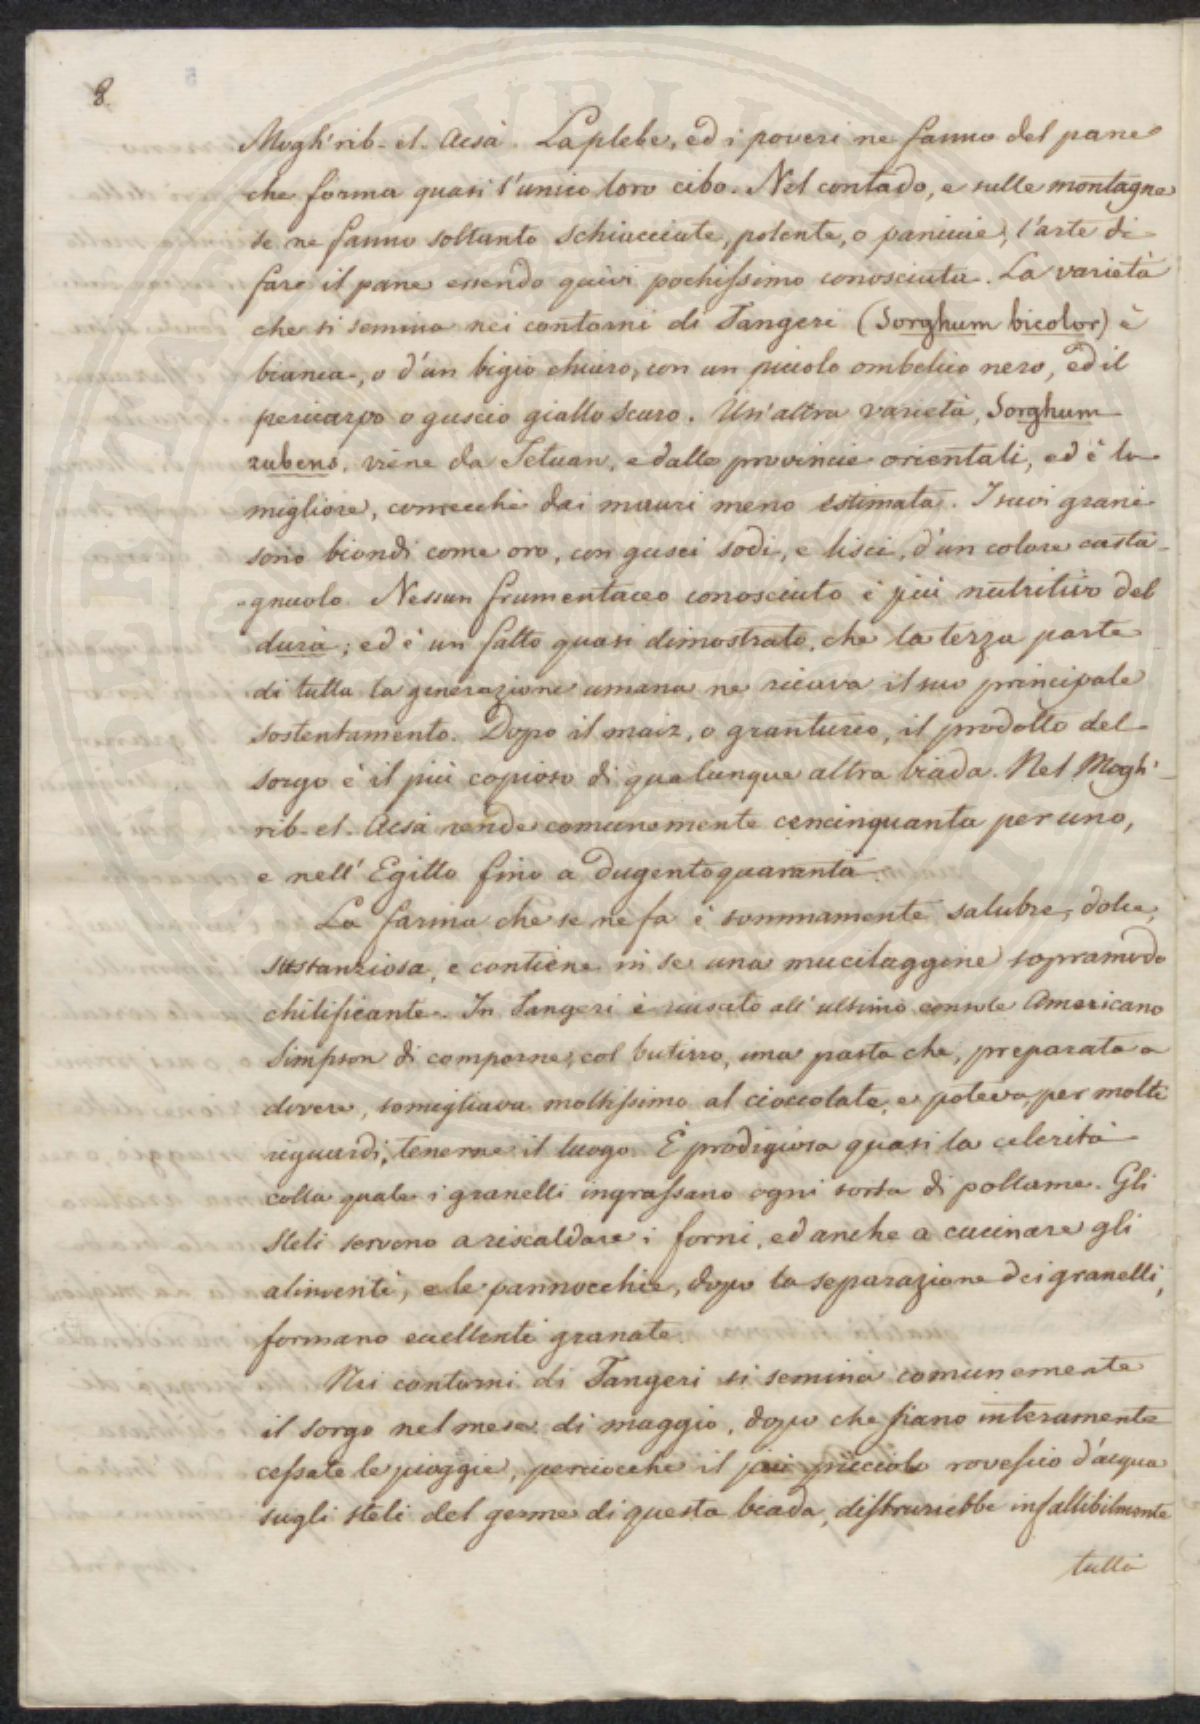 8.
Mogh'rib-el-Acsà. La plebe, ed i poveri ne fanno del pane
che forma quasi l'unico loro cibo. Nel contado, e sulle montagne
se ne fanno soltanto schiacciate, polente, o paniccie, l'arte di
fare il pane essendo quivi pochissimo conosciuta. La varietà
che si semina nei contorni di Tangeri (Sorghum bicolor) è
bianca, o d'un bigio chiaro, con un piccolo ombelico nero, ed il
pericarpo o guscio giallo scuro. Un'altra varietà, Sorghum
rubens, viene da Tetuan, e dalle provincie orientali, ed è la
migliore, comecchè dai mauri meno estimata. I suoi grani
sono biondi come oro, con gusci sodi, e lisci, d'un colore casta-
-gnuolo. Nessun frumentaceo conosciuto è più nutritivo del
durà; ed è un fatto quasi dimostrato, che la terza parte
di tutta la generazione umana ne ricava il suo principale
sostentamento. Dopo il maiz, o granturco, il prodotto del
sorgo è il più copioso di qualunque altra biada. Nel Mogh'-
rib-el-Acsà rende comunemente cencinquanta per uno,
e nell'Egitto fino a dugentoquaranta.
La farina che se ne fa è sommamente salubre, dolce,
sustanziosa, e contiene in se una mucilaggine sopramodo
chilificante. In Tangeri è riuscito all'ultimo console Americano
Simpson di comporne, col butirro, una pasta che, preparata a
dovere, somigliava moltissimo al cioccolate, e poteva per molti
riguardi, tenerne il luogo. È prodigiosa quasi la celerità
colla quale i granelli ingrassano ogni sorta di pollame. Gli
steli servono a riscaldare i forni, ed anche a cucinare gli
alimenti, e le pannocchie, dopo la separazione dei granelli,
formano eccellenti granate.
Nei contorni di Tangeri si semina comunemente
il sorgo nel mese di maggio, dopo che siano interamente
cessate le pioggie, perciocchè il più piccolo rovescio d'acqua
sugli steli del germe di questa biada, distrurrebbe infallibilmente
tutta